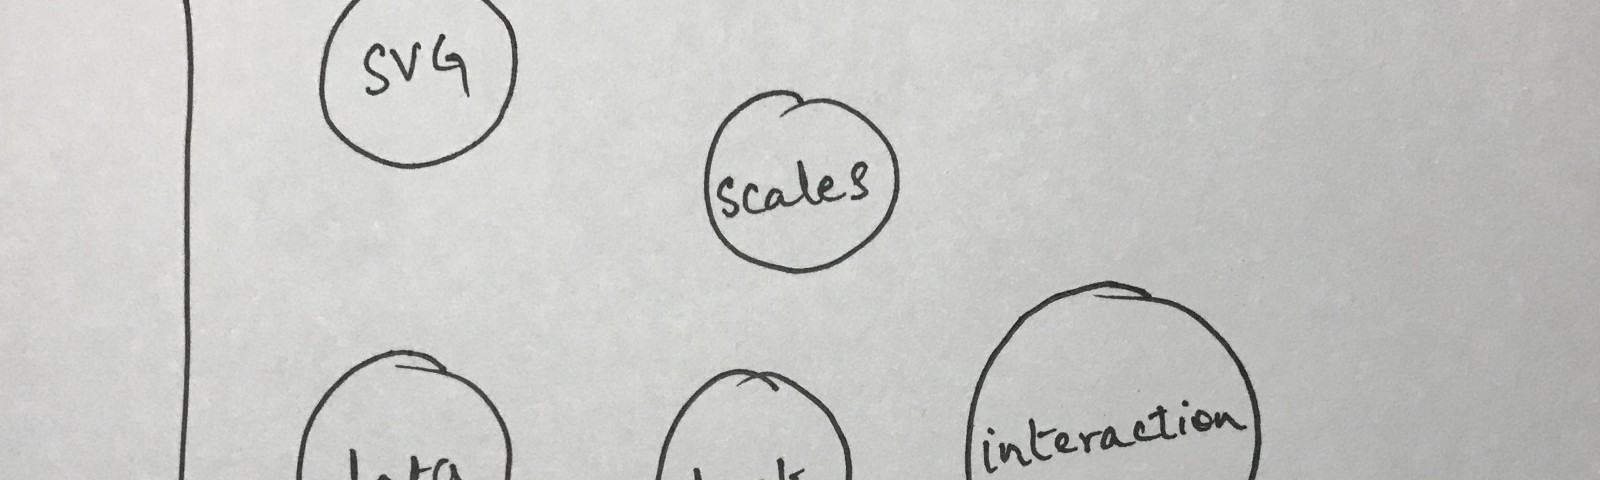 SVG
scales
interaction
data